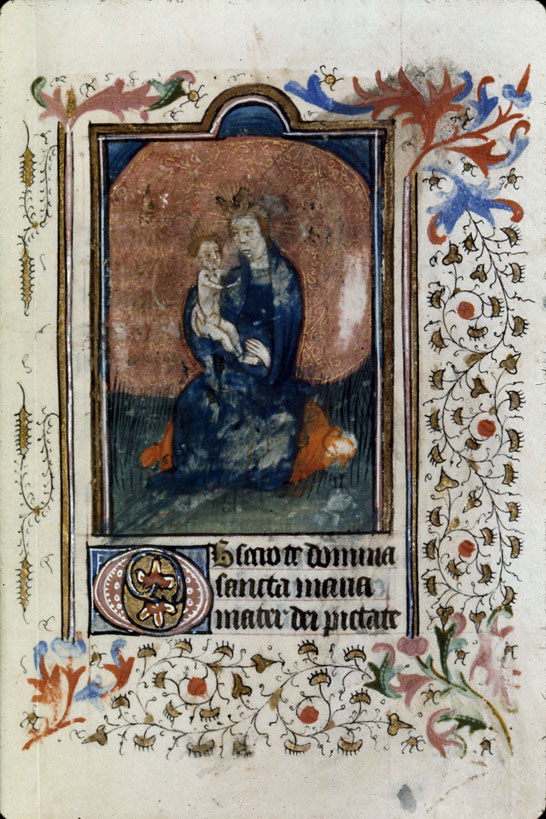 OBsecro te domina
sancta maria
mater dei pietate